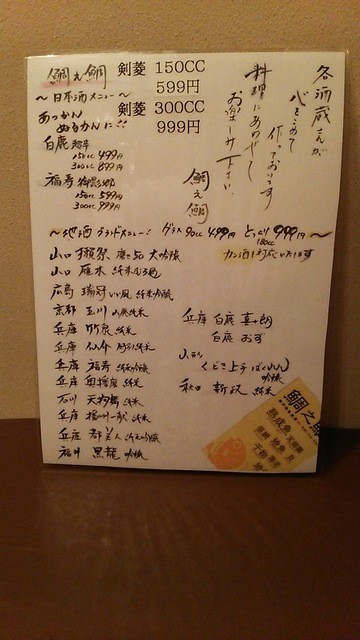 各酒蔵さんが
心をこめて
作っております
料理にあわせて
お楽しみ下さい。
鯛之鯛
鯛之鯛
~日本酒メニュー~
剣菱 150CC
599円
剣菱 300CC
999円
あつかん
ぬるかんに!!
白鹿
150cc 499円
300cc 899円
福寿 御影郷
150cc 599円
300cc 999円
~地酒 グランドメニュー! グラス90cc 499円 とっくり 180cc 999円~
カン酒 対応いたします
山口 獺祭 磨き50 大吟醸
山口 雁木 純米
広島 瑞冠 いい風 純米吟醸
京都 玉川 山廃純米
兵庫 竹泉 純米
兵庫 仙介 純米
兵庫 福寿 純米吟醸
兵庫 奥播磨 純米
石川 天狗舞 純米
兵庫 播州一献 純米
兵庫 都美人 純米吟醸
福井 黒龍 吟醸
兵庫 白鹿
白鹿
山形
くどき上手 ばくれん
吟醸
秋田 新政 純米
鯛之鯛